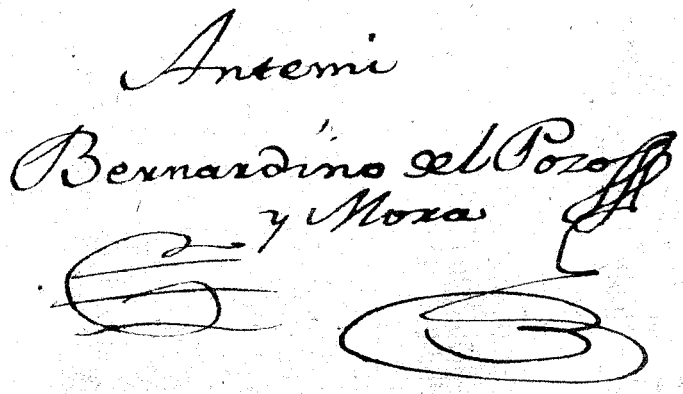 Antemi
Bernardino del Pozo
y Mora